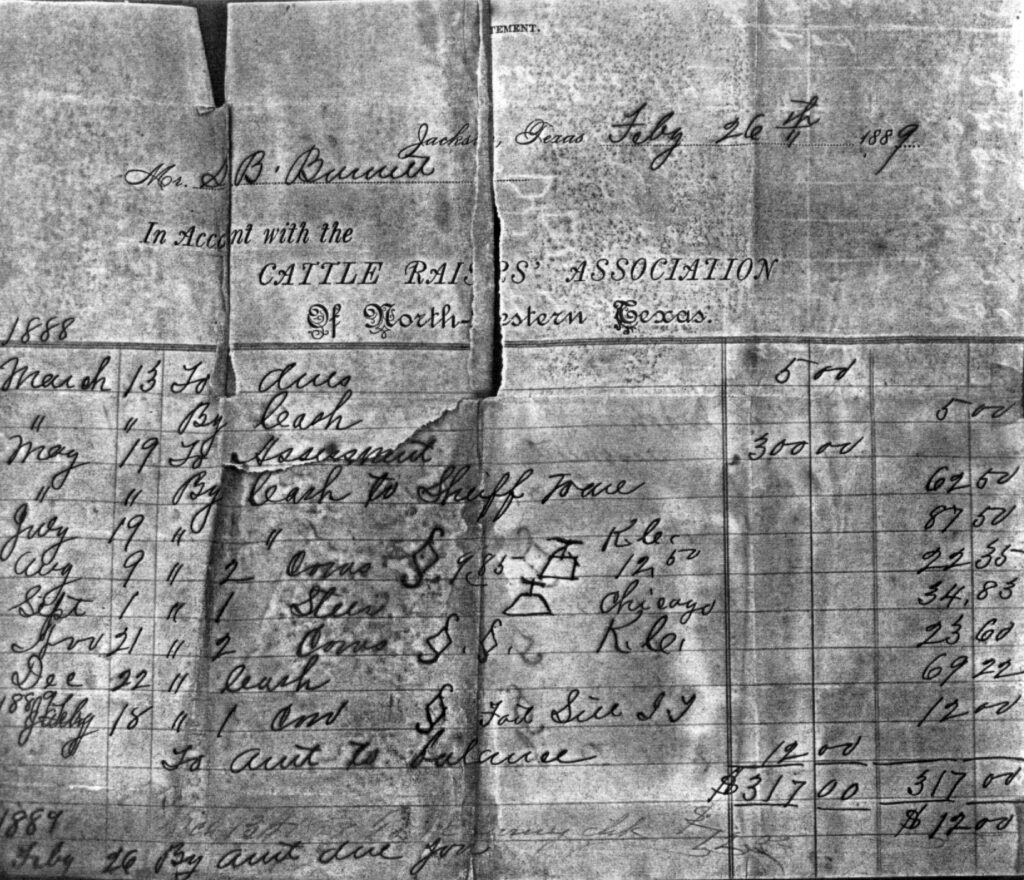 TEMENT.
Jacks , Texas Feby 26 th 1889
Mr. S B. Burnett
In Accont with the
CATTLE RAIS RS' ASSOCIATION
Of North- estern Texas.
1888
March 13 To dues 5 00
" " By Cash 5 00
May 19 To Assesment 300 00
" " By Cash to Sheriff 62 50
July 19 " " 87 50
Aug 9 " 2 Cows 9.85 K.C. 12 50 22 35
Sept 1 " 1 Steer Chicago 34.83
Nov 21 " 2 Cows K.C. 23 60
Dec 22 " Cash 69 22
1889 Feby 18 " 1 Cow Fort Sill I T 12 00
To amt to balance 12 00
$317 00 317 00
1889 $ 12 00
Feby 26 By amt due you